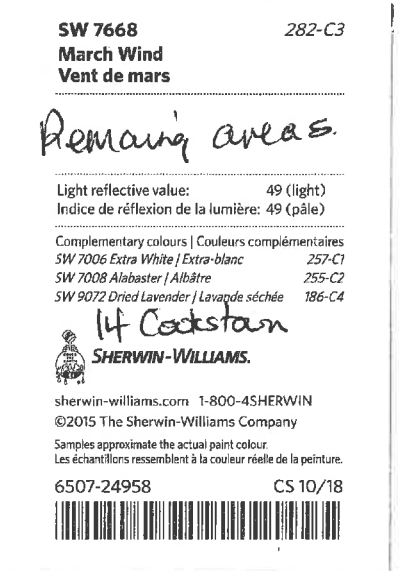 SW 7668 282-C3
March Wind
Vent de mars
Remaing areas.
Light reflective value: 49 (light)
Indice de réflexion de la lumière: 49 (pâle)
Complementary colours | Couleurs complémentaires
SW 7006 Extra White / Extra-blanc 257-C1
SW 7008 Alabaster / Albâtre 255-C2
SW 9072 Dried Lavender / Lavande séchée 186-C4
14 Cookstown
SHERWIN-WILLIAMS.
sherwin-williams.com 1-800-4SHERWIN
©2015 The Sherwin-Williams Company
Samples approximate the actual paint colour.
Les échantillons ressemblent à la couleur réelle de la peinture.
6507-24958 CS 10/18